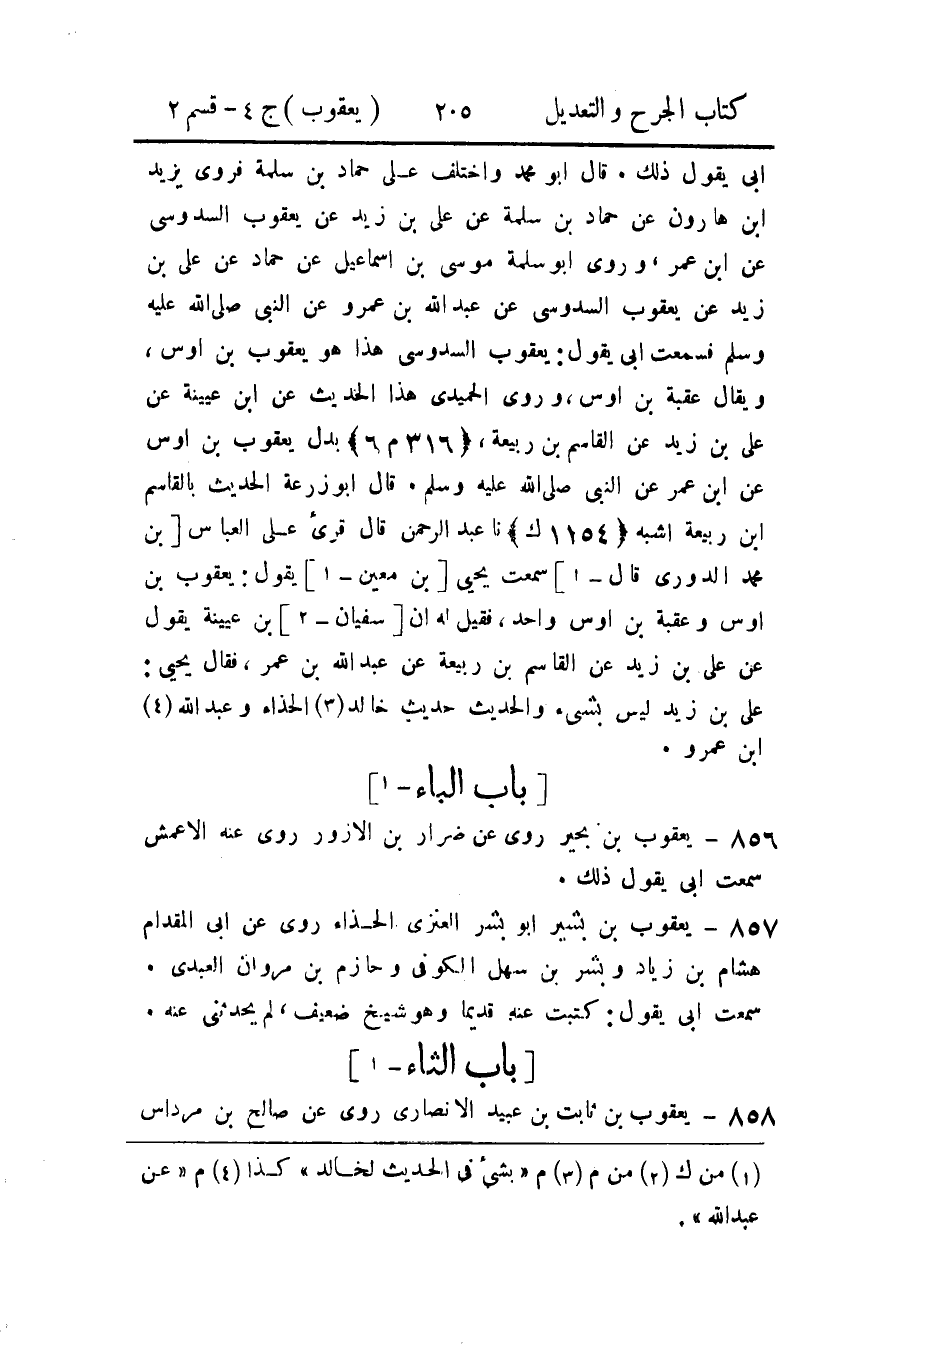 كتاب الجرح والتعديل ٢٠٥ ( يعقوب ) ج ٤ - قسم ٢
ابى يقول ذلك . قال ابو محمد واختلف على حماد بن سلمة فروى يزيد
ابن هارون عن حماد بن سلمة عن على بن زيد عن يعقوب السدوسى
عن ابن عمر ، وروى ابو سلمة موسى بن اسماعيل عن حماد عن على بن
زيد عن يعقوب السدوسى عن عبد الله بن عمرو عن النبى صلى الله عليه
وسلم فسمعت ابى يقول : يعقوب السدوسى هذا هو يعقوب بن اوس ،
ويقال عقبة بن اوس ، وروى الحميدى هذا الحديث عن ابن عيينة عن
على بن زيد عن القاسم بن ربيعة ، ﴿ ٣١٦ م ٦ ﴾ بدل يعقوب بن اوس
عن ابن عمر عن النبى صلى الله عليه وسلم . قال ابو زرعة الحديث بالقاسم
ابن ربيعة اشبه ﴿ ١١٥٤ ك ﴾ نا عبد الرحمن قال قرئ على العباس [ بن
محمد الدورى قال - ١ ] سمعت يحيى [ بن معين - ١ ] يقول : يعقوب بن
اوس وعقبة بن اوس واحد ، فقيل له ان [ سفيان - ٢ ] بن عيينة يقول
عن على بن زيد عن القاسم بن ربيعة عن عبد الله بن عمر ، فقال يحيى :
على بن زيد ليس بشىء والحديث حديث خالد (٣) الحذاء وعبد الله (٤)
ابن عمرو .
[ باب الباء - ١ ]
٨٥٦ - يعقوب بن بحير روى عن ضرار بن الازور روى عنه الاعمش
سمعت ابى يقول ذلك .
٨٥٧ - يعقوب بن بشير ابو بشر العنزى الحذاء روى عن ابى المقدام
هشام بن زياد وبشر بن سهل الكوفى وحازم بن مروان العبدى .
سمعت ابى يقول : كتبت عنه قديما وهو شيخ ضعيف ، لم يحدثنى عنه .
[ باب الثاء - ١ ]
٨٥٨ - يعقوب بن ثابت بن عبيد الانصارى روى عن صالح بن مرداس
(١) من ك (٢) من م (٣) م « بشئ فى الحديث لخالد » كذا (٤) م « عن
عبد الله » .